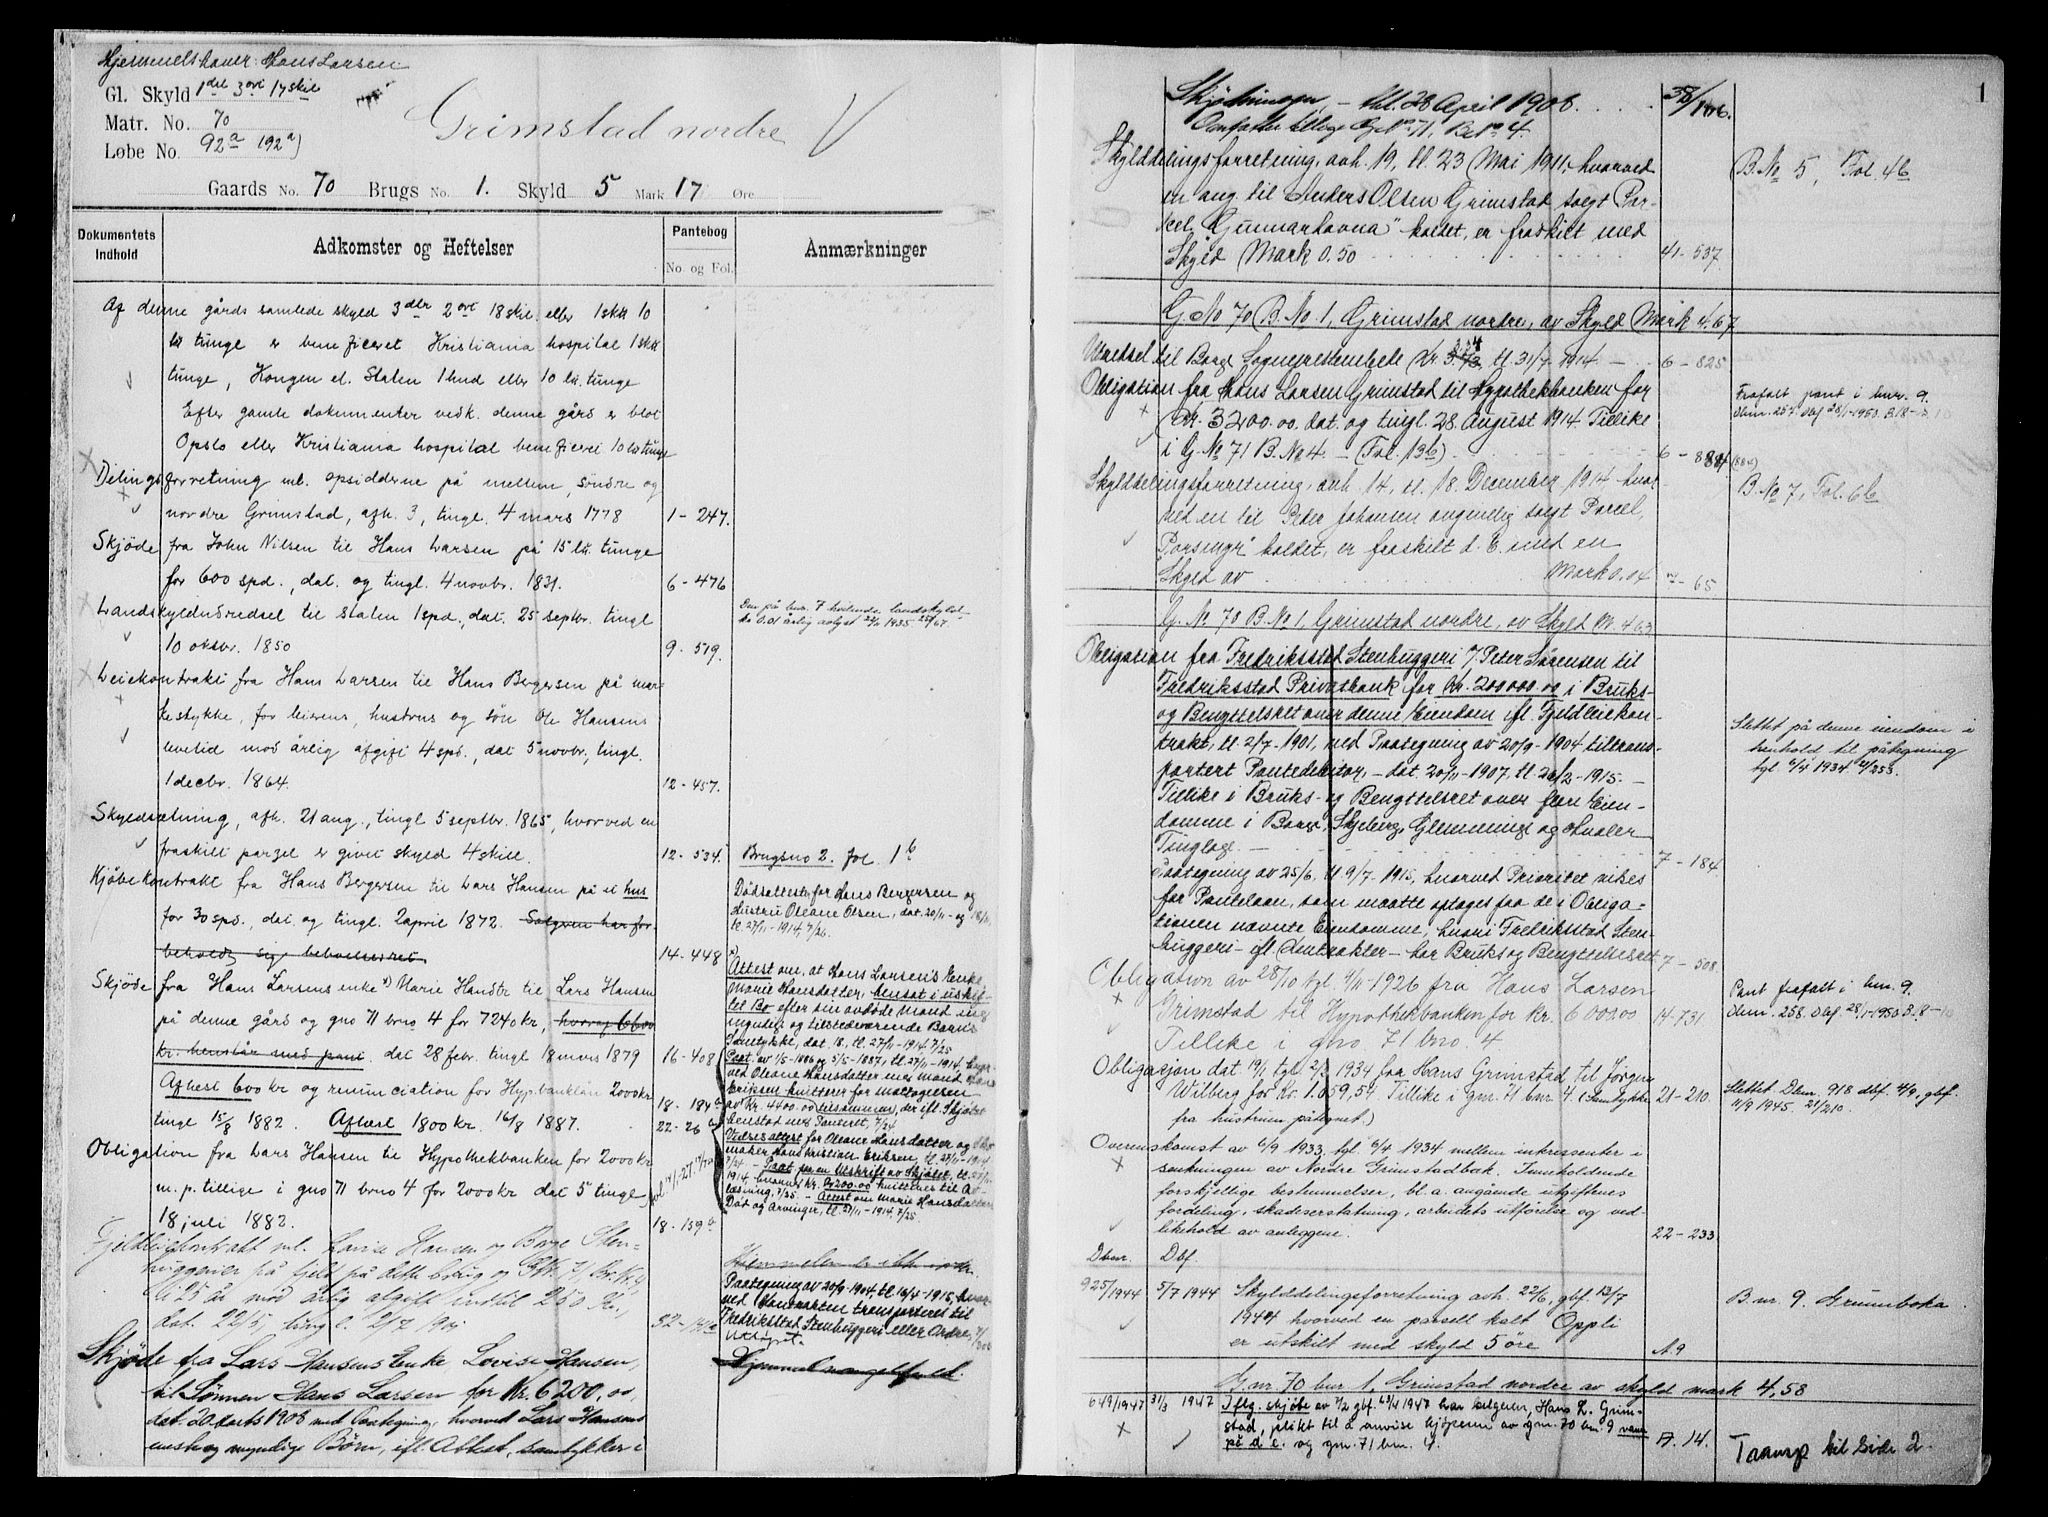 Hjemmelshaver: Hans Larsen
Gl. Skyld 1 dlr 3 ort 17 skil
Matr. No. 70
Løbe No. 92a 192a)
Grimstad nordre
Gaards No. 70 Brugs No. 1. Skyld 5 Mark 17 Øre
Dokumentets Indhold
Adkomster og Heftelser
Pantebog
No. og Fol.
Anmærkninger
Af denne gårds samlede skyld 3 dlr 2 ort 18 skil. eller 1 skk 10
tunge er beneficeret Kristiania hospital 1 skk
tunge, Kongen el. Staten 1 hud eller 10 lk. tunge
Efter gamle dokumenter vedk. denne gård er blot
Opslo eller Kristiania hospital beneficeri 10 lk tunge
Delingsforretning ml. opsidderne på mellem, søndre og
nordre Grimstad, afh. 3, tingl. 4 mars 1778 1-247.
Skjøde fra John Nilsen til Hans Larsen på 15 lk. tunge
for 600 spd., dat. og tingl. 4 novbr. 1831. 6-476
Landskyldudredsel til Staten 1 spd., dat. 25 septbr. tingl
10 oktbr. 1850 9-519.
Den på bnr. 7 hvilende landskyld
Leiekontrakt fra Hans Larsen til Hans Bergersen på mar-
kestykke, for leierens, hustrus og søn Ole Hansens
levetid mod årlig afgift 4 spd., dat 5 novbr., tingl.
1 decbr. 1864. 12-457.
Skyldsætning, afh. 21 aug., tingl 5 septbr. 1865, hvorved en
fraskilt parzel er givet skyld 4 skill. 12-534.
Brugsno 2. fol. 1b
Kjøbekontrakt fra Hans Bergersen til Lars Hansen på et hus
for 30 spd., dat og tingl. 2 april 1872. Sælgeren har for-
beholdt sig beboelsesret 14-448
Dødsattest for Hans Bergersen og
Hustru Oleane Olsen, dat. 20/11 og
tl. 27/11-1914, 7/26.
Skjøde fra Hans Larsens enke Marie Hansdtr til Lars Hansen
på denne gård og gno 71 bno 4 for 7240 kr, hvoraf 6600
kr. henstår med pant. dat 28 febr. tingl 18 mars 1879 16-408
Attest om, at Hans Larsen's Enke
Marie Hansdatter, hensat i uskif-
tet Bo efter sin avdøde Mand
myndig og tilstedeværende Barns
Samtykke, dat. 18, tl. 27/11-1914. 7/25
Afhest 600 kr og renunciation for Hyp.banklån 2000 kr
tingl 15/8 1882. Afhest 1800 kr. 16/8 1887.
18-184a
22-26
Paat. av 1/5-1886 og 5/5-1887, tl. 27/11-1914
ved Oleane Hansdatter med mand
Eriksen kvitterer for mottagelsen
av Kr. 4400.00
Vielsesattest for Oleane Hansdatter og
Obligation fra Lars Hansen til Hypothekbanken for 2000 kr
m. p. tillige i gno 71 bno 4 for 2000 kr dat 5 tingl
18 juli 1882. 18-159a
Døt og Arvinger, tl. 27/11-1914, 7/25.
Fjeldleiekontrakt ml. Lovise Hansen og Borge Sten-
huggerier på fjeld på dette brug og GNr. 71, Br. Nr. 4
i 25 år mod årlig afgift indtil 250 Kr.,
dat. 22/5, tingl. 2/7 1901 32-
Paategning av 20/9-1904 tl. 16/4-1915, hvor-
ved Kontrakten transporteres til
Fredriksstad Stenhuggeri eller Ordre,
Skjøde fra Lars Hansens Enke Lovise Hansen,
til Sønnen Hans Larsen for Kr. 6200,00
dat. 20 marts 1908 med Paategning, hvorved Lars Hansens
enke og myndige Børn, ifl. Attest, samtykker i
Hjemmel mangelfuld.
1
Skjødningen, - tl. 28 April 1908
Omfatter tillige G. No 71, B. No 4.
Skylddelingsforretning, avh. 19, tl. 23 Mai 1911, hvorved
en ang. til Anders Olsen Grimstad solgt Par-
cel, "Gunnarhavna" kaldet, er fraskilt med
Skyld Mark 0.50 41-537
B. No 5, Fol. 4b
G. No 70 B. No 1, Grimstad nordre, av Skyld Mark 4.67
Utredsel til Borge Sogneprestembede tl 31/7-1914 6-825
Obligation fra Hans Larsen Grimstad til Hypothekbanken for
Kr. 3200.00, dat. og tingl. 28. August 1914. Tillike
i G. No 71 B. No 4. - (Fol. 13b) 6-884
Frafalt pant i bnr. 9.
Skylddelingsforretning, avh. 14, tl. 18. December 1914 hvor-
ved en til Peder Johansen angivelig solgt Parcel,
"Porsmyr" kaldet, er fraskilt d. E. med en
Skyld av Mark 0.04 7-65
B. No 7, Fol. 6b
G. No 70 B. No 1, Grimstad nordre, av Skyld M. 4.63
Obligation fra Fredriksstad Stenhuggeri v/ Peter Sørensen til
Fredriksstad Privatbank for kr. 200000.00 i Bruks-
og Benyttelsesret over denne Eiendom ifl. Fjeldleiekon-
trakt, tl. 2/7-1901, ved Paategning av 20/9-1904 tiltrans-
portert Pantedebitor, - dat 20/11-1907. tl. 26/2-1915. -
Tillike i Bruks- og Benyttelsesret over flere Eien-
domme i Borge, Skjeberg, Glemminge og Hvaler
Tinglag. - 7-184
Slettet på denne eiendom i
henhold til påtegning
tgl. 6/4 1934 21/253.
Paategning av 25/6. tl 9/7-1915, hvorved Prioritet vikes
for Pantelaan, som maatte optages paa de i Obliga-
tionen nævnte Eiendomme, hvori Fredriksstad Sten-
huggeri - ifl. Kontrakter - har Bruks og Benyttelsesret 7-508.
Obligation av 28/10 tgl. 4/11-1926 fra Hans Larsen
Grimstad til Hypothekbanken for kr. 6000.00 14-731
Tillike i gno. 71 bno. 4
Pant frafalt i bnr. 9.
Dbnr. 258. Dbf. 28/1-1950. B. 8-10
Obligasjon dat 19/1 tgl. 2/2 1934 fra Hans Grimstad til Jørgen
Wilberg for Kr. 1.659,54 Tillike i gnr. 71 bnr. 4. (Samtykke
fra hustruen påtegnet.) 21-210.
Slettet. Dbnr. 918 dbf. 4/9, gbf.
11/9 1945. 21/210.
Overenskomst av 6/9 1933, tgl. 6/4 1934 mellem interessenter i
senkningen av Nordre Grimstadbæk. Inneholdende
forskjellige bestemmelser, bl.a. angående utgiftenes
fordeling, skadeserstatning, arbeidets utførelse og ved-
likehold av anleggene. 22-233
Dbnr. Dbf.
925/1944 5/7 1944 Skylddelingsforretning avh. 22/6, gbf. 12/7
1944 hvorved en parsell kalt Oppli
er utskilt med skyld 5 øre A.9
B. nr. 9. Grunnboka.
G. nr. 70 bnr 1, Grimstad nordre av skyld mark 4,58
649/1947 31/3 1947 Iflg. skjøte av gbf. 1947 har selgeren, Hans L. Grim-
stad, plikt til å anvise kjøperne av gnr. 70 bnr 9 vann
på d. e. og gnr. 71 bnr. 4. A.14.
Transp til side 2.